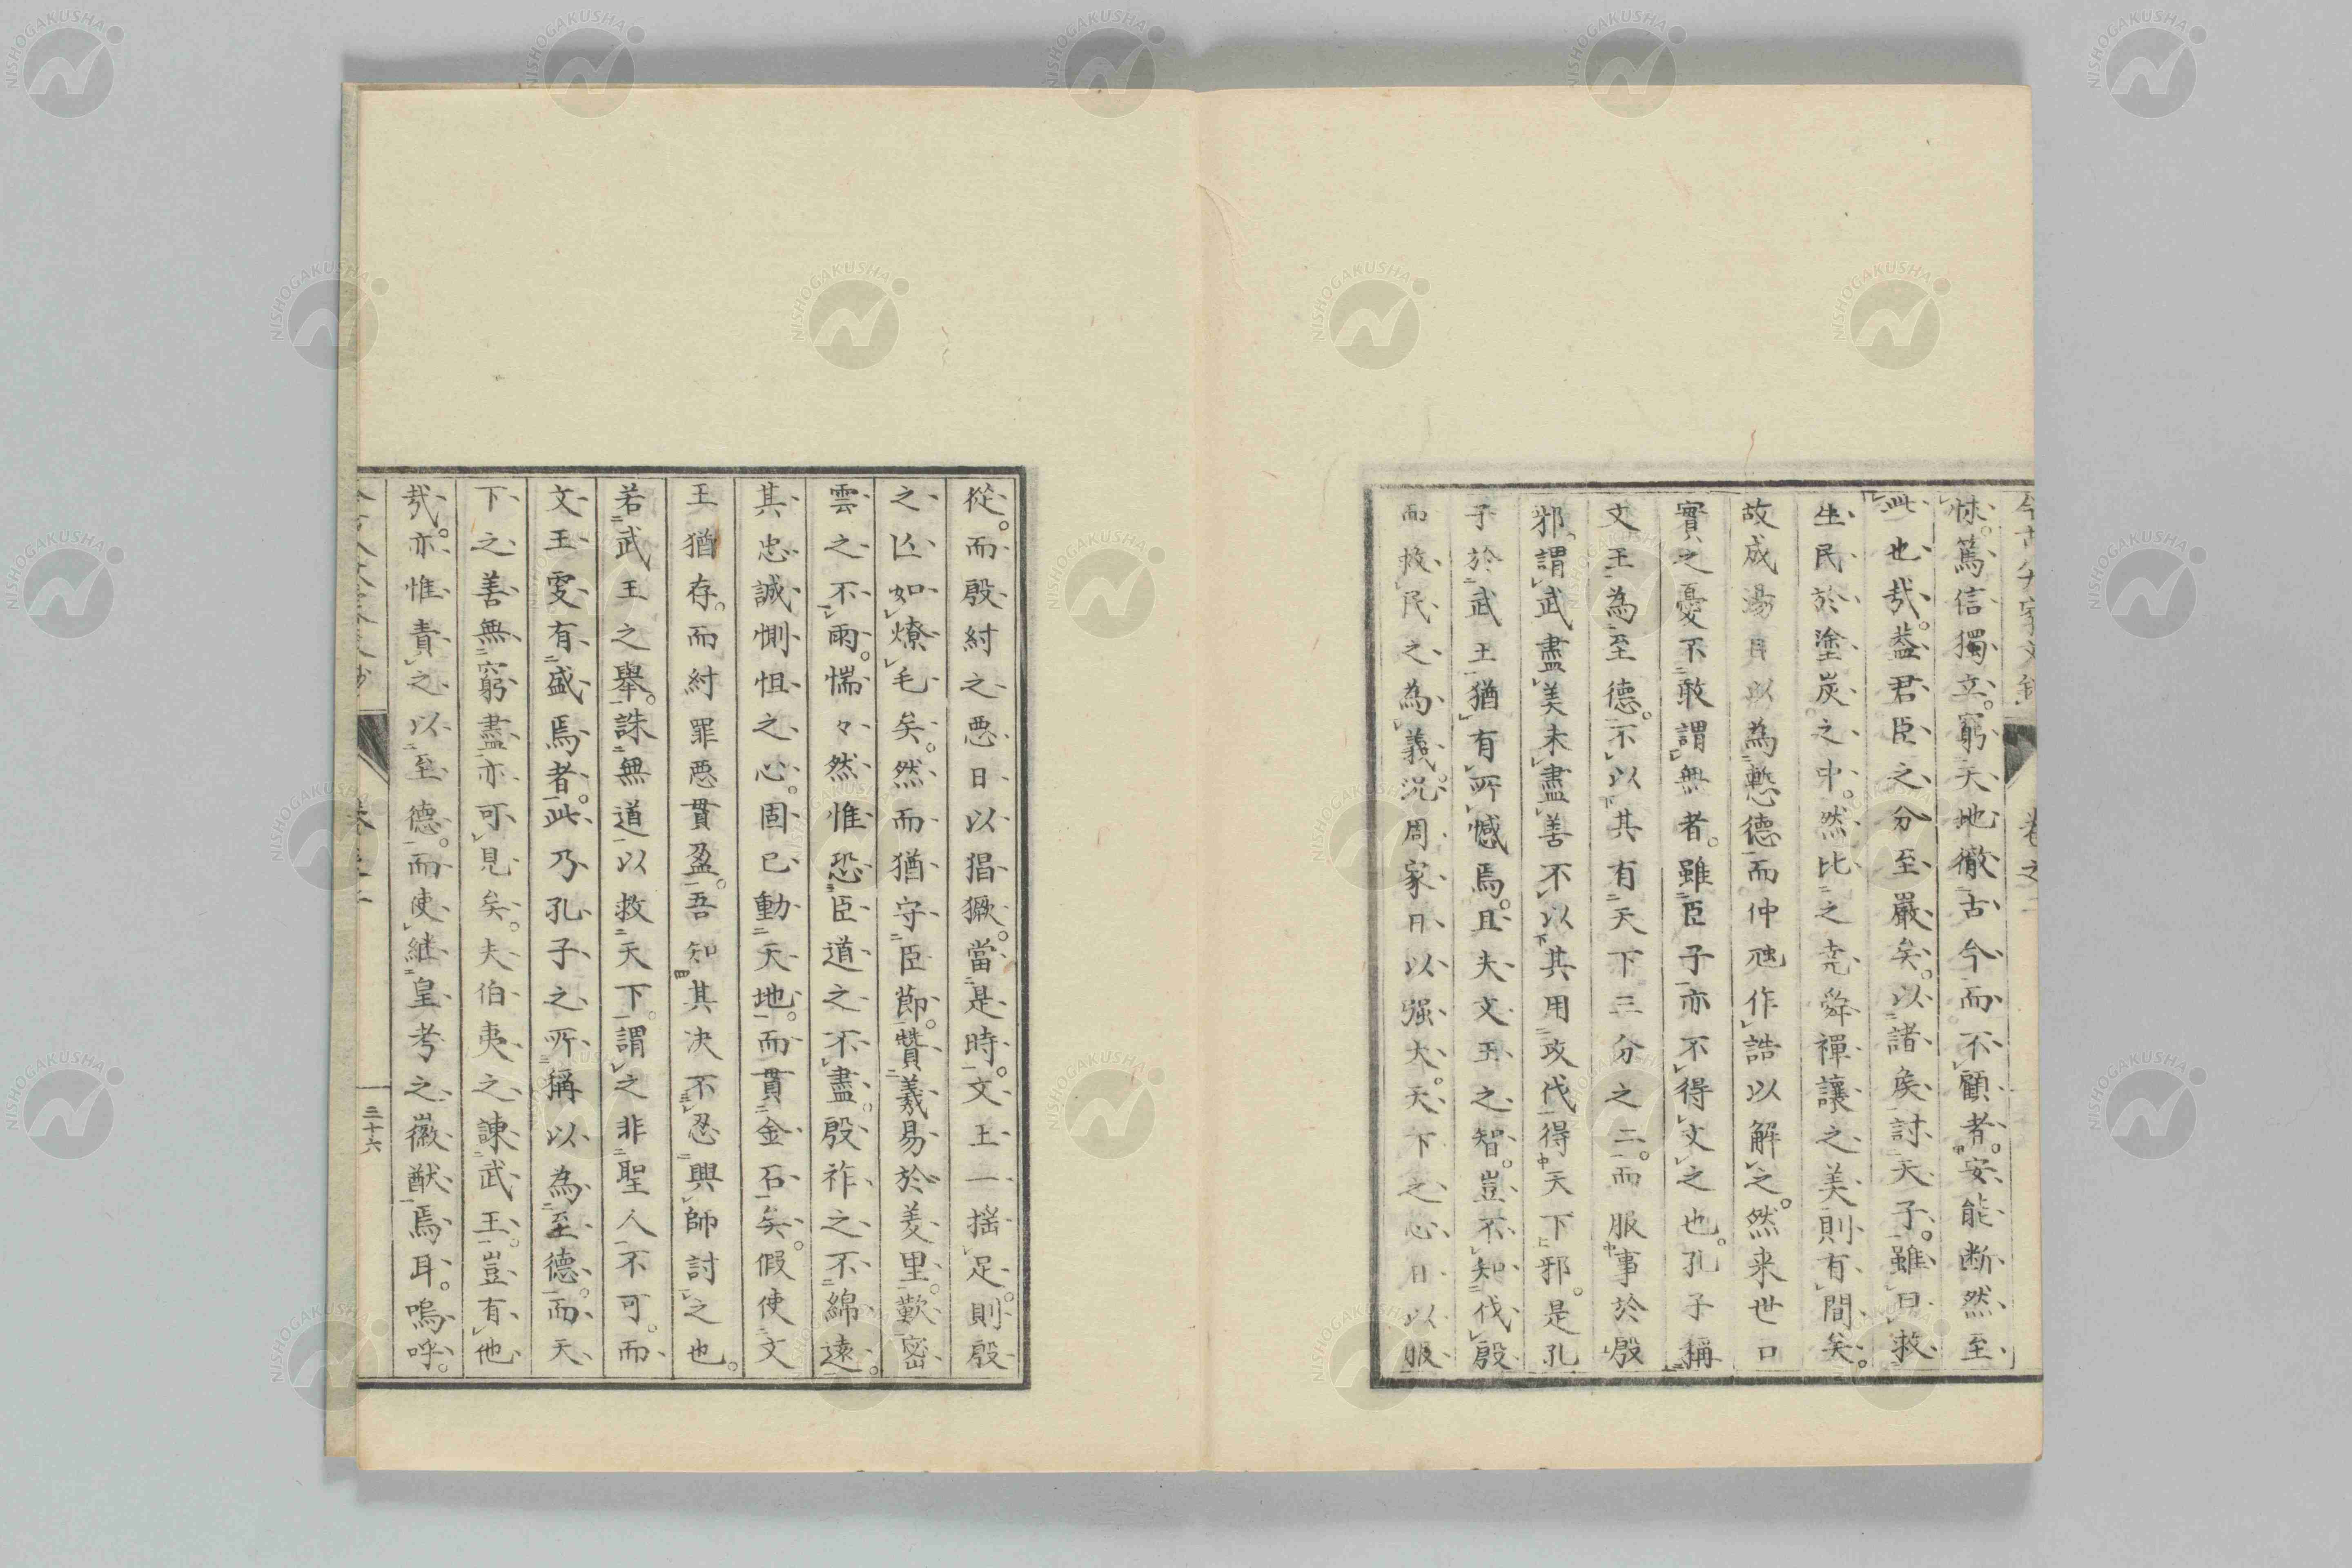 悚。篤信獨立。窮天地徹古今而不顧者。安能断然至
此也哉。蓋君臣之分至嚴矣。以諸侯討天子。雖曰救
生民於塗炭之中。然比之堯舜禪讓之美則有間矣。
故成湯且以為慙德而仲虺作誥以解之。然来世口
實之憂不敢謂無者。雖臣子亦不得文之也。孔子稱
文王為至德。不以其有天下三分之二。而服事於殷
邪。謂武盡美未盡善不以其用攻伐得天下邪。是孔
子於武王猶有所憾焉。且夫文王之智。豈不知伐殷
而救民之為義。況周家日以强大。天下之心日以服
從。而殷紂之惡日以猖獗。當是時。文王一搖足。則殷
之亡如燎毛矣。然而猶守臣節。贊羲易於羑里。歎密
雲之不雨。惴々然惟恐臣道之不盡。殷祚之不綿遠。
其忠誠惻怛之心。固已動天地。而貫金石矣。假使文
王猶存。而紂罪惡貫盈。吾知其决不忍興師討之也。
若武王之舉。誅無道以救天下。謂之非聖人不可。而
文王更有盛焉者。此乃孔子之所稱以為至德。而天
下之善無窮盡亦可見矣。夫伯夷之諫武王。豈有他
哉。亦惟責之以至德。而使継皇考之徽猷焉耳。嗚呼。
三十六
NISHOGAKUSHA